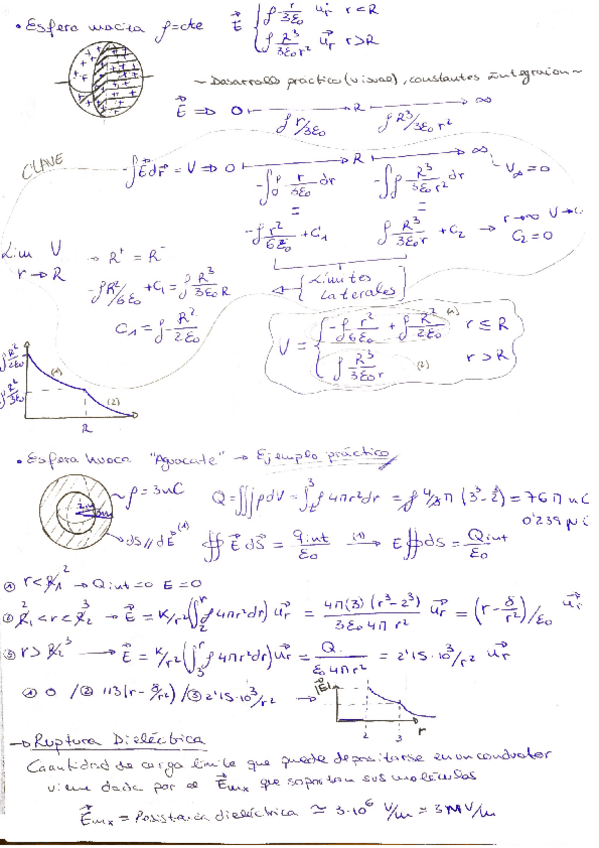 • Esfera maciza ρ=cte E⃗ { ρ r/3ε₀ u⃗r r<R
ρ R³/3ε₀r² u⃗r r>R
~ Desarrollo practico (visual), constantes Integraion ~
E⃗ ⇒ 0 ⟼ R ⟶ ∞
ρr/3ε₀ ρR³/3ε₀r²
CLAVE
-∫E⃗dr⃗ = V ⇒ 0 ⟼ R ⟶ ∞ V∞ = 0
-∫ρ r/3ε₀ dr -∫ρ R³/3ε₀r² dr
= =
-ρ r²/6ε₀ + C₁ ρ R³/3ε₀r + C₂ → r→∞ V→0
C₂=0
Lim V → R⁺ = R⁻
r→R
-ρR²/6ε₀ + C₁ = ρ R³/3ε₀R
{ Límites Laterales }
C₁ = ρ R²/2ε₀
V = { -ρ r²/6ε₀ + ρ R²/2ε₀ (1) r ≤ R
ρ R³/3ε₀r (2) r > R
ρR²/2ε₀
ρR²/3ε₀
(1)
(2)
R
• Esfera hueca "Aguacate" → Ejemplo práctico
ρ = 3nC Q = ∭ρdV = ∫₂³ ρ4πr²dr = ρ 4/3 π (3³-2³) = 76π nC
0'239 μC
ds // dE⃗ (1) ∯ E⃗ dS⃗ = qint/ε₀ (1)→ E∯ds = Qint/ε₀
① r<R₁ 2 → Qint=0 E=0
② R₁<r<R₂ 2 3 → E⃗ = K/r² (∫₂ʳ ρ4πr²dr) u⃗r = 4π(3)(r³-2³)/3ε₀4πr² u⃗r = (r-8/r²)/ε₀ u⃗r
③ r>R₂ 3 → E⃗ = K/r² (∫ρ4πr²dr) u⃗r = Q/ε₀4πr² = 2'15·10³/r² u⃗r
① 0 / ② 113(r-8/r²) / ③ 2'15·10³/r² →
|E⃗|
2 3 r
→ Ruptura Dieléctrica
Caantidad de carga límite que puede depositarse en un conductor
viene dada por el E⃗mx que soportan sus moléculas
E⃗mx = Resistencia dieléctrica ≃ 3·10⁶ V/m = 3MV/m